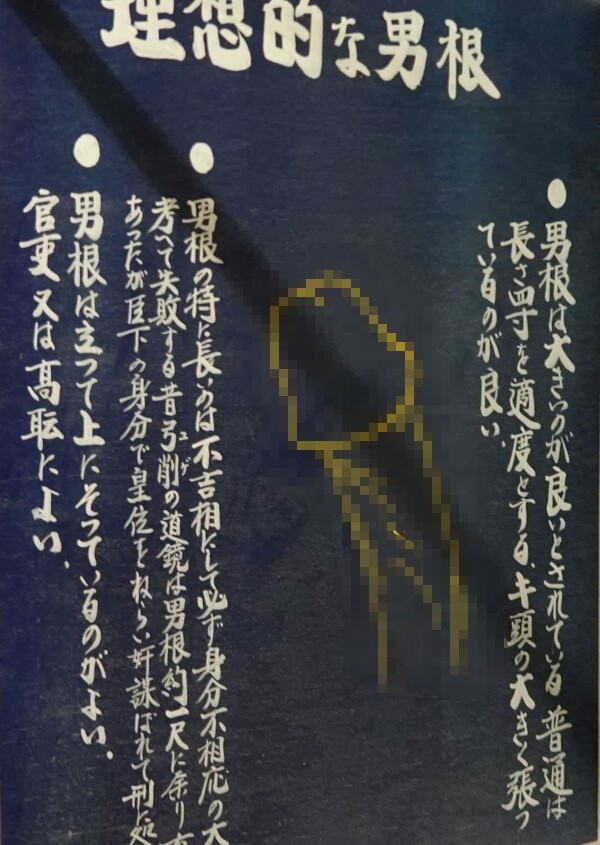 理想的な男根
●男根は大きいのが良いとされている 普通は
長さ四寸を適度とする、キ頭の大きく張つ
ているのが良い、
●男根の特に長いのは不吉相にして必ず身分不相応の大
考へて失敗する昔弓削の道鏡は男根約一尺に余り
ユゲ
あつたが臣下の身分で皇位をねらい奸謀ばれて刑に処
●男根は立つて上にそつているのがよい、
官吏又は高転によい、